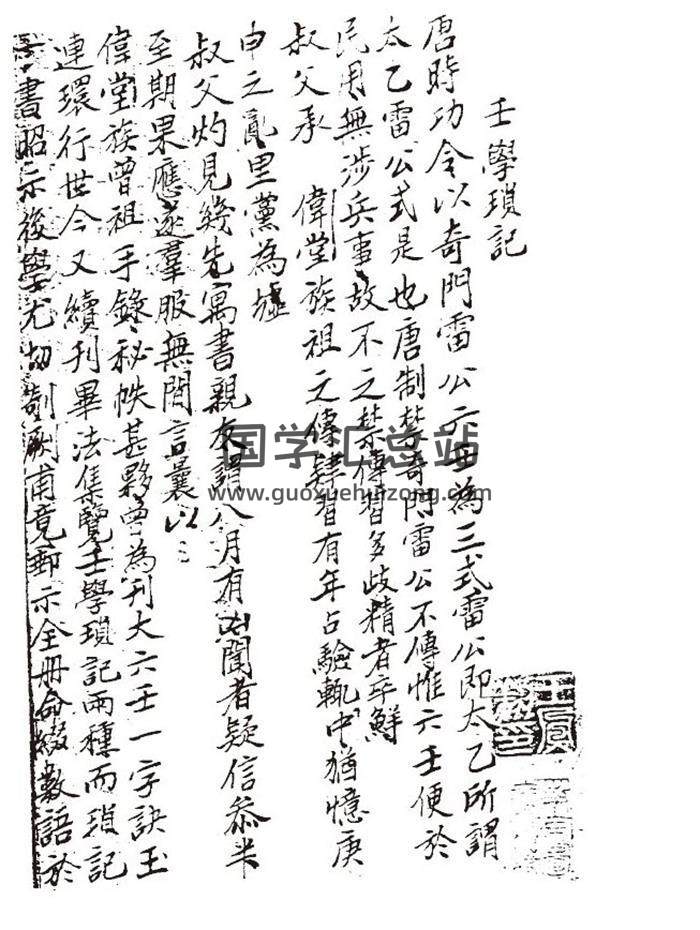 壬學瑣記
唐時功令以奇門雷公六壬為三式雷公即太乙所謂
太乙雷公式是也唐制禁奇門雷公不傳惟六壬便於
民用無涉兵事故不之禁傳習多歧精者卒鮮
叔父承 偉堂族祖之傳肄習有年占驗輒中猶憶庚
申之亂里黨為墟
叔父灼見幾先寓書親友謂八月有凶聞者疑信叅半
至期果應遂羣服無間言曩以
偉堂族曾祖手錄秘帙甚夥曾為刊大六壬一字訣玉
連環行世今又續刊畢法集覽壬學瑣記兩種而瑣記
書昭示後學尤切剞劂甫竟郵示全冊命綴數語於
国学汇总站
www.guoxuehuizong.com